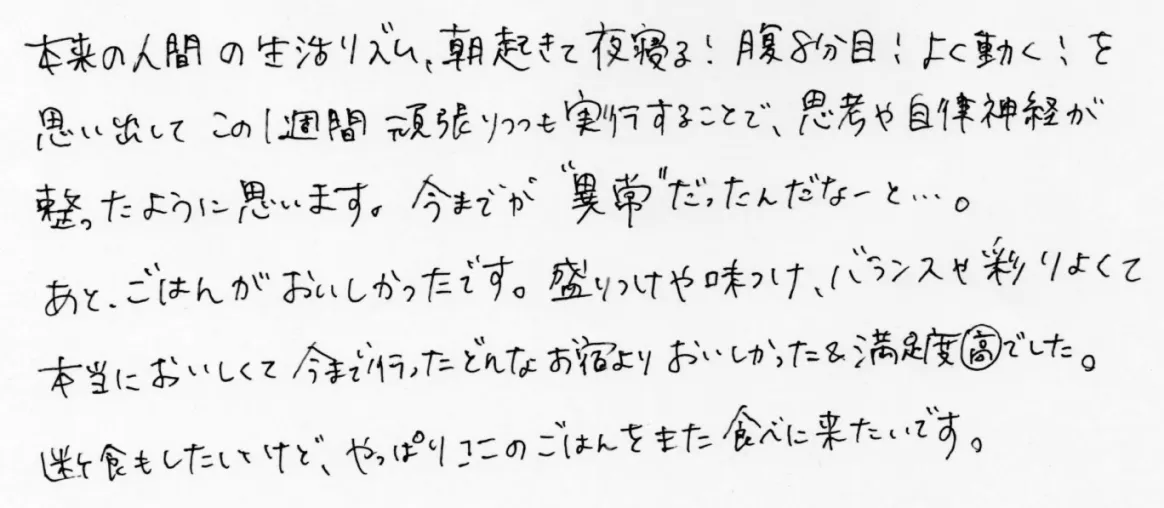 本来の人間の生活リズム、朝起きて夜寝る！腹8分目！よく動く！を
思い出してこの1週間頑張りつつも実行することで、思考や自律神経が
整ったように思います。今までが"異常"だったんだなーと…。
あと、ごはんがおいしかったです。盛りつけや味つけ、バランスや彩りよくて
本当においしくて今まで行ったどんなお宿よりおいしかった&満足度㊤でした。
断食もしたいけど、やっぱりここのごはんをまた食べに来たいです。